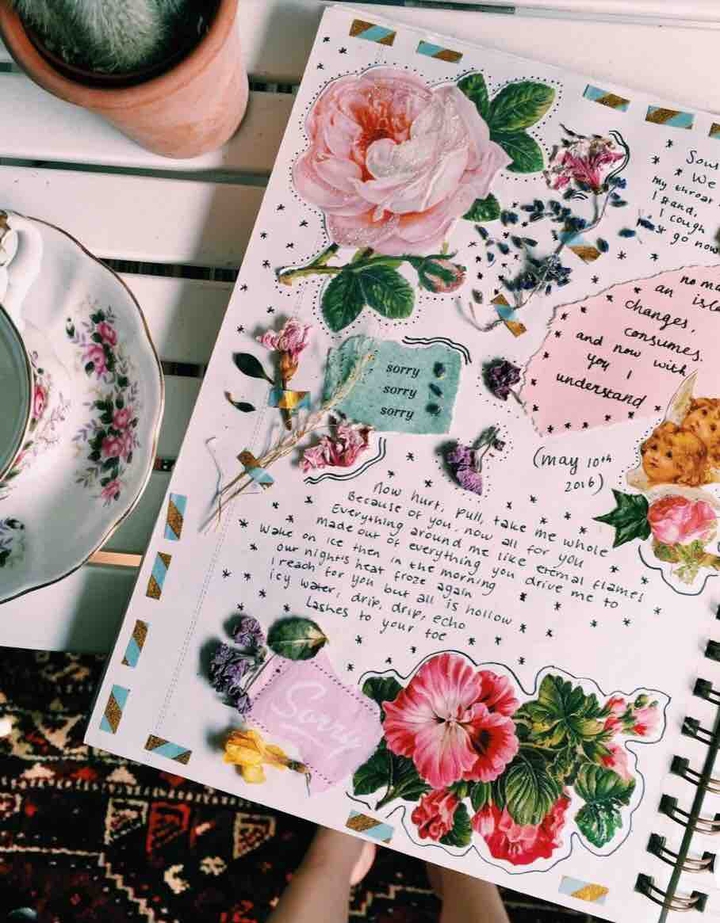 We
my throat
I stand,
I cough
go now
changes,
consumes.
and now with
you I
understand
sorry
sorry
sorry
(may 10th
2016)
Now hurt, pull, take me whole
Because of you, now all for you
Everything around me like eternal flames
made out of everything you drive me to
Wake on ice then in the morning
our night's heat froze again
I reach for you but all is hollow
icy water, drip, drip, echo
Lashes to your toe
Sorry